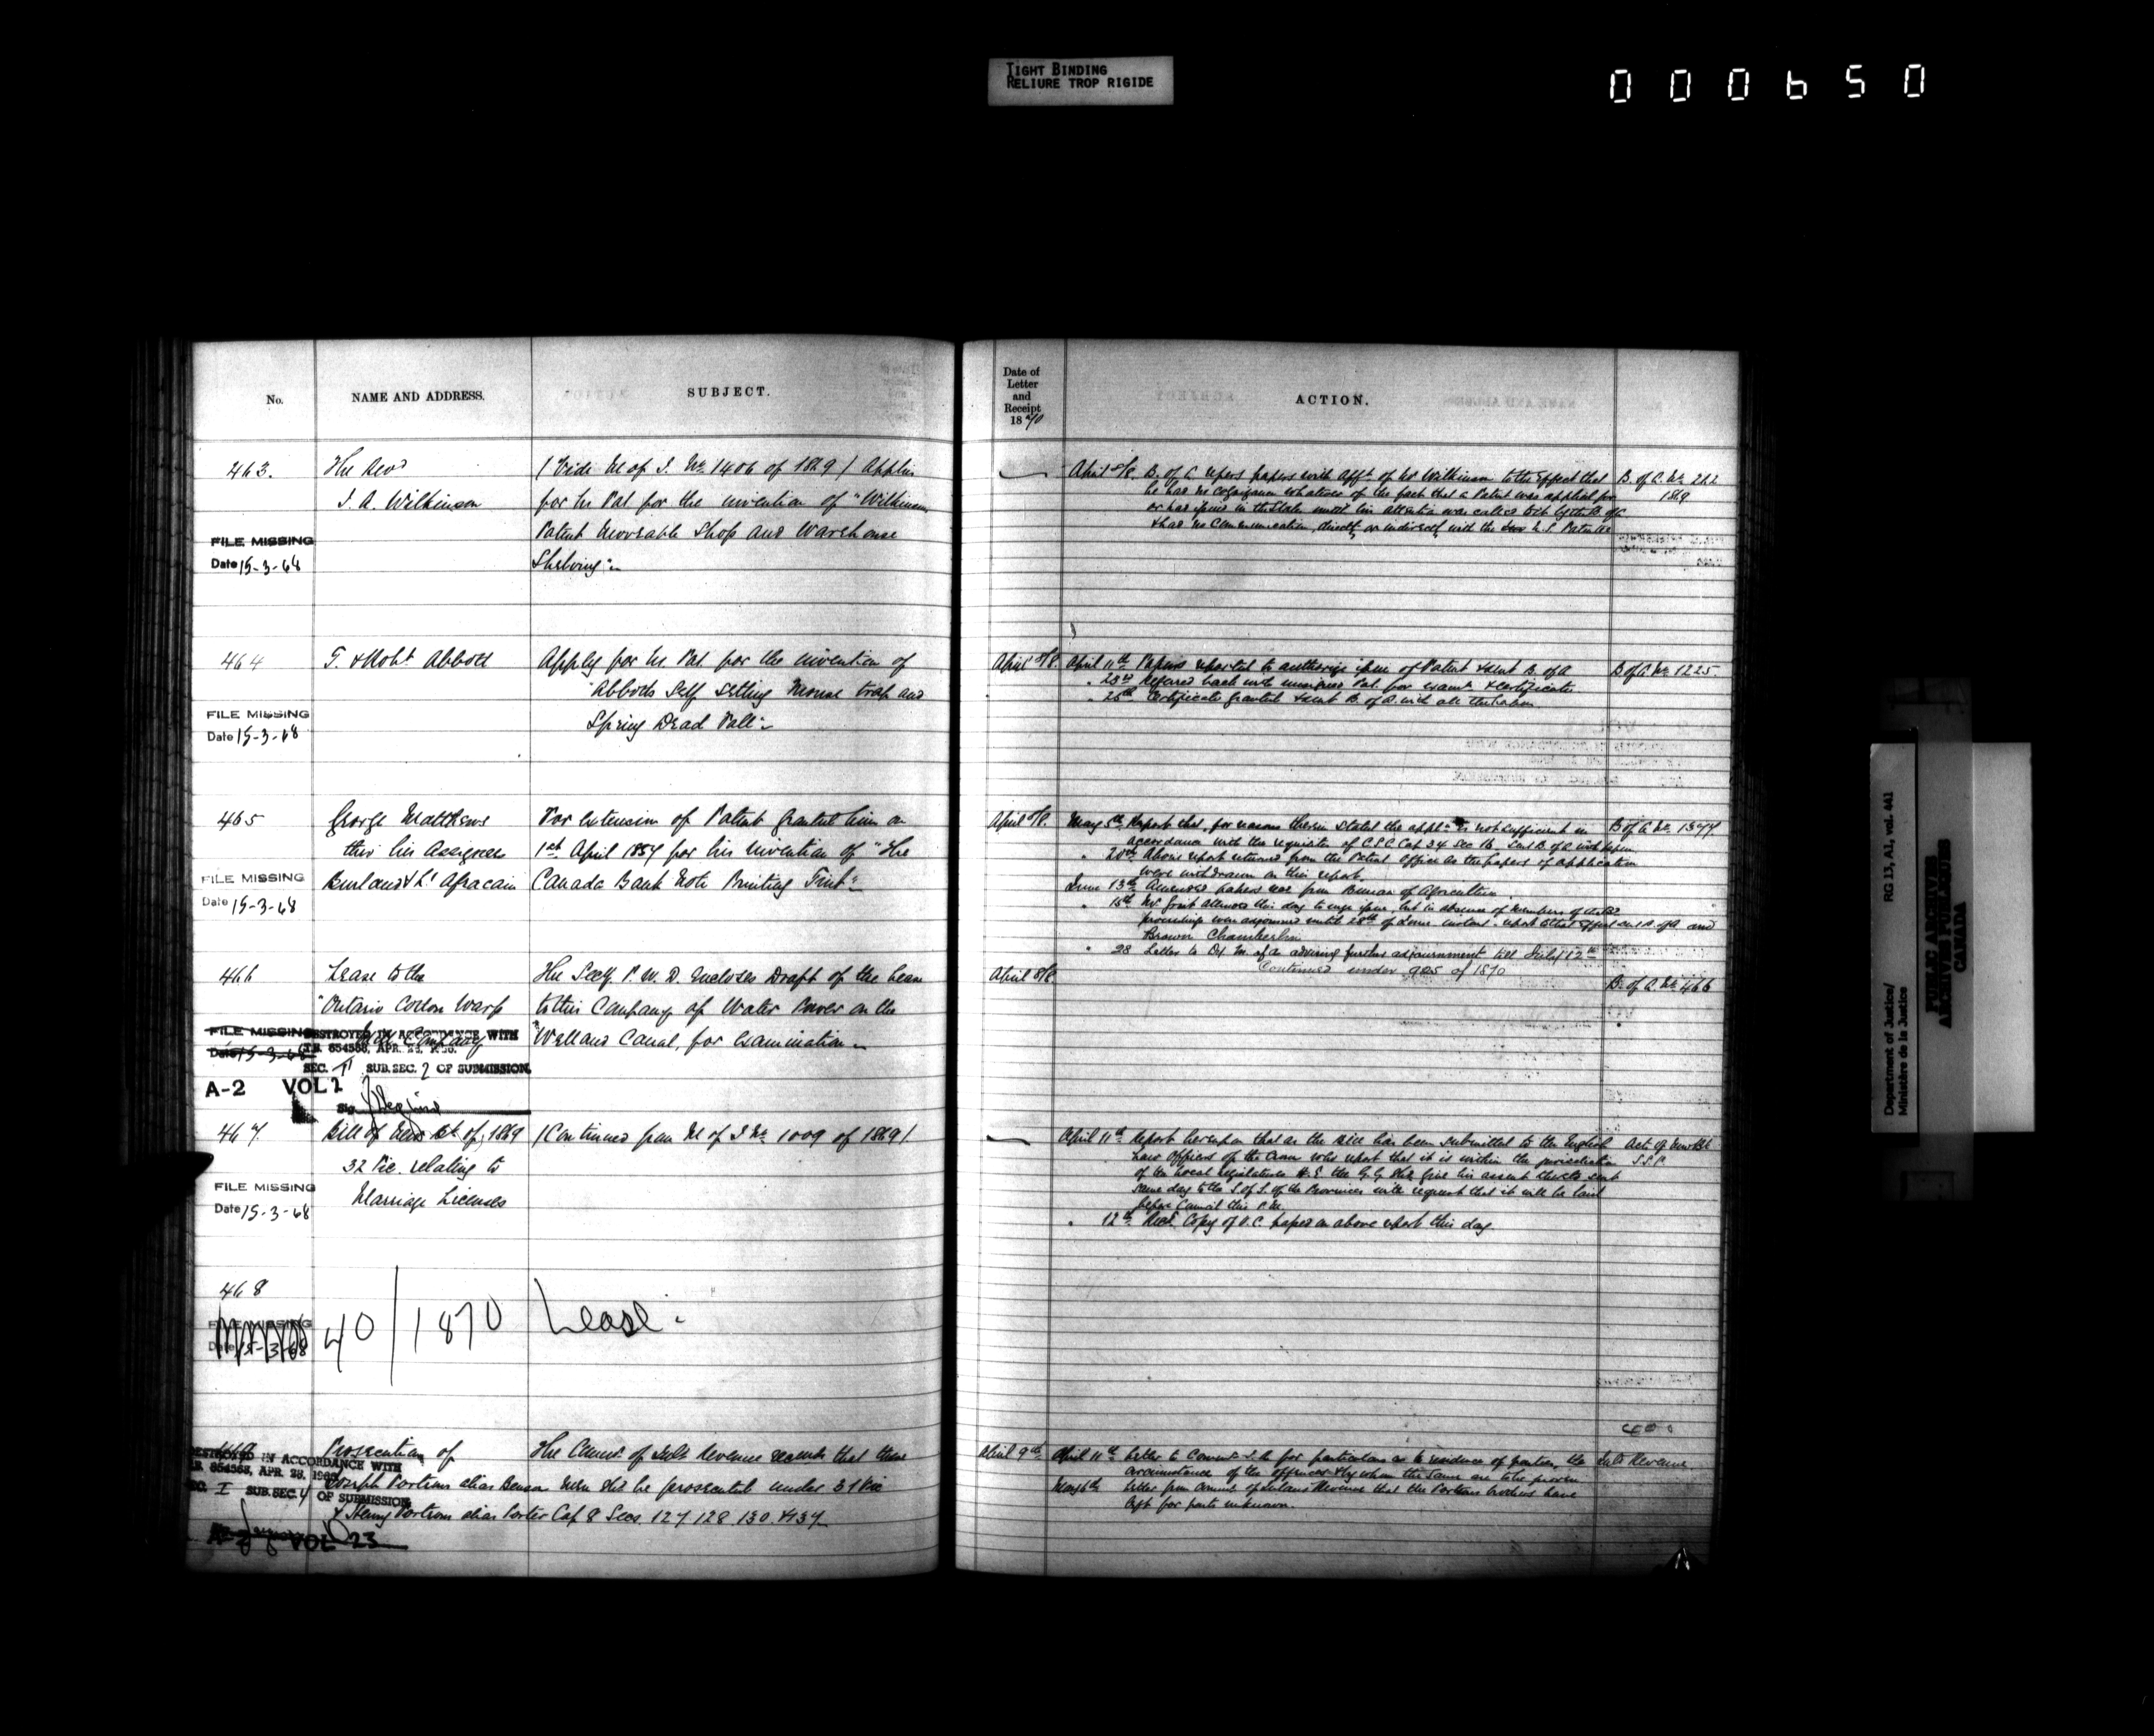 TIGHT BINDING
RELIURE TROP RIGIDE
000650
No. NAME AND ADDRESS. SUBJECT.
463. The Revd (Vide M of J. No. 1406 of 1869) Applies
J. A. Wilkinson for the Pat for the invention of "Wilkinson
Patent Moveable Shop and Warehouse
Shelving"
FILE MISSING
Date 15-3-68
464 T. & Robt Abbott Apply for the Pat. for the invention of
"Abbotts Self setting Mouse trap and
Spring Dead Fall"
FILE MISSING
Date 15-3-68
465 George Matthews For extension of Patent granted him on
thro' his Assignees 1st April 1857 for his invention of "The
Burland & L' Africain Canada Bank Note Printing Tint"
FILE MISSING
Date 15-3-68
466 Lease to the The Secy P. W. D. encloses Draft of the lease
"Ontario Cotton Warp to this Company of Water Power on the
Company Welland Canal, for examination
FILE MISSING
Date 15-3-68
DESTROYED IN ACCORDANCE WITH
T.B. 654568, APR.
SEC. II SUB. SEC. 2 OF SUBMISSION
A-2 VOL 2
Sig.
467. Bill of 1869 (Continued from M of J No. 1009 of 1869)
32 Vic. relating to
Marriage Licenses
FILE MISSING
Date 15-3-68
468
FILE MISSING
Date 15-3-68
40/1870 Lease
Prosecution of The Commr of Inld Revenue recomds that these
Joseph Portross alias men shd be prosecuted under 31 Vic
& Henry alias Porter Cap 8 Secs. 127. 128. 130. &
DESTROYED IN ACCORDANCE WITH
T.B. 654568, APR. 28, 1966
SEC. I SUB. SEC. 4 OF SUBMISSION
VOL 23
Date of
Letter
and
Receipt
1870
ACTION.
April 8/8. B. of A. reports papers with Afft of Mr Wilkinson to the effect that B. of A. No. 222
he had no cognizance whatever of the fact that a Patent was applied for 1869
or had issued in the States until his attention was called to it by the B. of A.
& had no communication, directly or indirectly, with the U. S. Patentee
April 8/8. April 11th Papers reported to authorize issue of Patent & sent B. of A B of A No. 1225.
" 23rd Referred back with unsigned Pat. for examn & certificate
" 26th Certificate granted & sent B. of A. with
April 8/8. May 5th Report that, for reasons therein stated the appln is not sufficient in B of A. No. 1377
accordance with the requisites of C.S.C. Cap 34 Sec 16. Sent B. of A with papers
" 20th Above report returned from the Patent Office as the papers of application
were withdrawn on this report.
June 13th Amended papers rec from Bureau of Agriculture.
" 15th Mr attended this day to urge issue, but in absence of members of
proceedings were adjourned until 28th of June instant. report to that effect and
Brown Chamberlin
" 28 Letter to Dy M. of A. advising further adjournment till July 12th
Continued under 905 of 1870
April 8/8. B. of A. No. 466
April 11th Report hereupon that as the Bill has been submitted to the English
Law Officers of the Crown who report that it is within the jurisdiction S.S.P.
of the Local Legislatures H. E. the G. G. shd give his assent thereto sent
same day to the S. of S. of the Provinces with request that it will be laid
before Council this P.M.
" 12th Recd. Copy of O. C. passed on above report this day
April 9th April 11th Letter to Commr I. R. for particulars as to residence of parties, the Inld Revenue
circumstances of the offences & by whom the same are to be proven
May 6th Letter from Commr of Inland Revenue that the brothers have
left for parts unknown.
Department of Justice/ RG 13, A1, vol. 441
Ministère de la Justice
PUBLIC ARCHIVES
ARCHIVES PUBLIQUES
CANADA